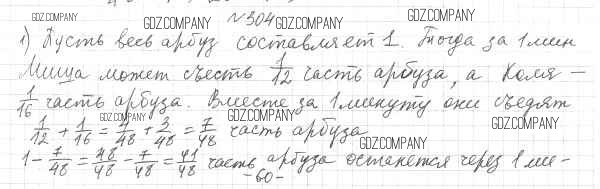 GDZ.COMPANY №304 GDZ.COMPANY GDZ.COMPANY
1) Пусть весь арбуз составляет 1. Тогда за 1 мин
Миша может съесть 1/12 часть арбуза, а Коля —
1/16 часть арбуза. Вместе за 1 минуту они съедят
GDZ.COMPANY GDZ.COMPANY GDZ.COMPANY
1/12 + 1/16 = 4/48 + 3/48 = 7/48 часть арбуза
GDZ.COMPANY
1 - 7/48 = 48/48 - 7/48 = 41/48 часть арбуза останется через 1 ми-
-60-